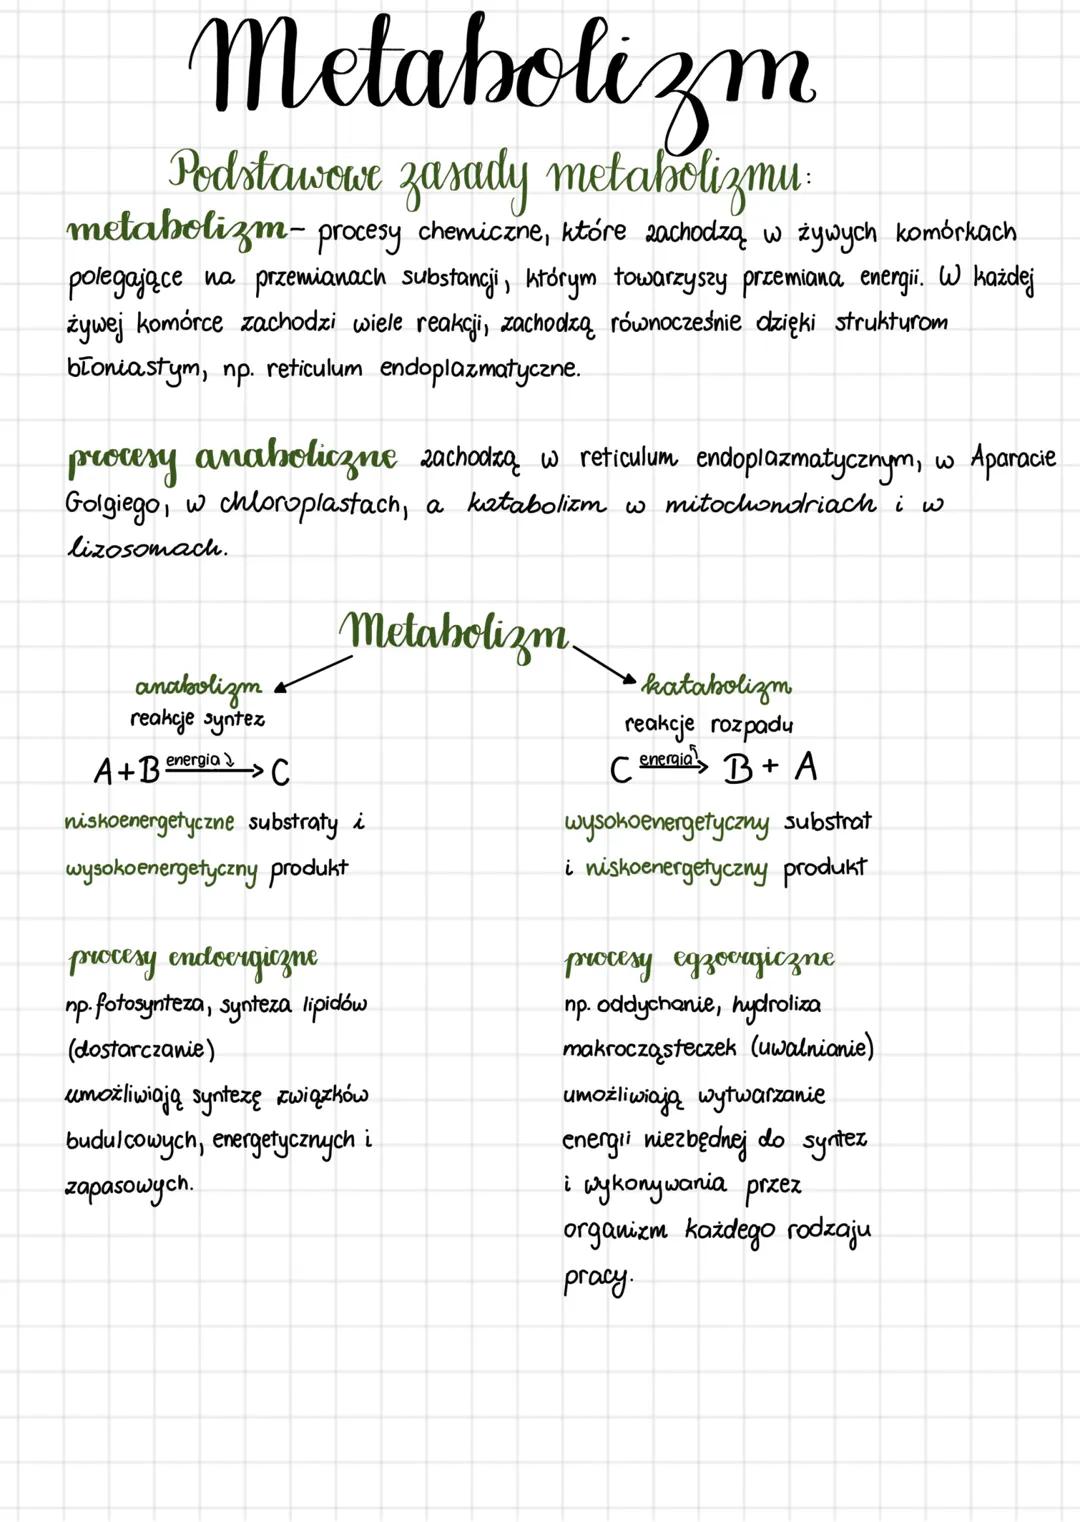 Metabolizm
Podstawowe zasady metabolizmu:
metabolizm- procesy chemiczne, które zachodzą w żywych komórkach
polegające na przemianach substancji, którym towarzyszy przemiana energii. W każdej
żywej komórce zachodzi wiele reakcji, zachodzą równocześnie dzięki strukturom
błoniastym, np. reticulum endoplazmatyczne.
procesy anaboliczne zachodzą w reticulum endoplazmatycznym, w Aparacie
Golgiego, w chloroplastach, a katabolizm w mitochondriach i w
lizosomach.
Metabolizm
anabolizm
reakcje syntez
A+B energia↓ → C
niskoenergetyczne substraty i
wysokoenergetyczny produkt
procesy endoergiczne
np. fotosynteza, synteza lipidów
(dostarczanie)
umożliwiają syntezę związków
budulcowych, energetycznych i
zapasowych.
katabolizm
reakcje rozpadu
C energia↑ → B + A
wysokoenergetyczny substrat
i niskoenergetyczny produkt
procesy egzoergiczne
np. oddychanie, hydroliza
makrocząsteczek (uwalnianie)
umożliwiają wytwarzanie
energii niezbędnej do syntez
i wykonywania przez
organizm każdego rodzaju
pracy.